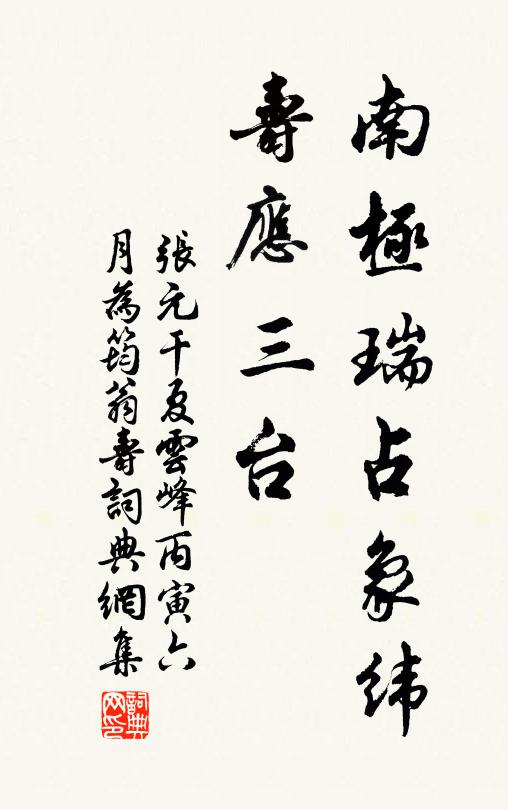 南極瑞占象緯
壽應三台
張元干夏雲峰丙寅六
月為筠翁壽詞典網集
詞典
网印